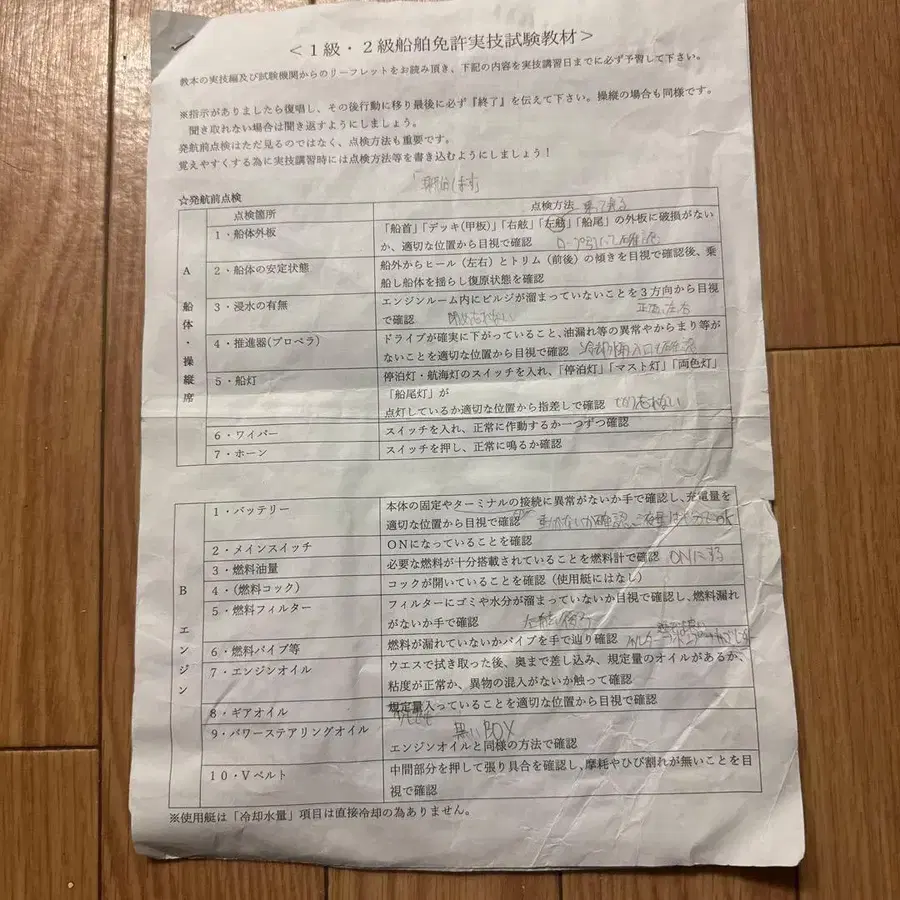 ＜１級・２級船舶免許実技試験教材＞
教本の実技編及び試験機関からのリーフレットをお読み頂き、下記の内容を実技講習日までに必ず予習して下さい。
※指示がありましたら復唱し、その後行動に移り最後に必ず『終了』を伝えて下さい。操縦の場合も同様です。
聞き取れない場合は聞き返すようにしましょう。
発航前点検はただ見るのではなく、点検方法も重要です。
覚えやすくする為に実技講習時には点検方法等を書き込むようにしましょう！
☆発航前点検
点検箇所
点検方法
A 船体・操縦席
１・船体外板
「船首」「デッキ(甲板)」「右舷」「左舷」「船尾」の外板に破損がない
か、適切な位置から目視で確認
２・船体の安定状態
船外からヒール（左右）とトリム（前後）の傾きを目視で確認後、乗
船し船体を揺らし復原状態を確認
３・浸水の有無
エンジンルーム内にビルジが溜まっていないことを３方向から目視
で確認
４・推進器(プロペラ)
ドライブが確実に下がっていること、油漏れ等の異常やからまり等が
ないことを適切な位置から目視で確認
５・船灯
停泊灯・航海灯のスイッチを入れ、「停泊灯」「マスト灯」「両色灯」
「船尾灯」が
点灯しているか適切な位置から指差しで確認
６・ワイパー
スイッチを入れ、正常に作動するか一つずつ確認
７・ホーン
スイッチを押し、正常に鳴るか確認
B エンジン
１・バッテリー
本体の固定やターミナルの接続に異常がないか手で確認し、充電量を
適切な位置から目視で確認
２・メインスイッチ
ＯＮになっていることを確認
３・燃料油量
必要な燃料が十分搭載されていることを燃料計で確認 ONにする
４・(燃料コック)
コックが開いていることを確認（使用艇にはなし）
５・燃料フィルター
フィルターにゴミや水分が溜まっていないか目視で確認し、燃料漏れ
がないか手で確認
６・燃料パイプ等
燃料が漏れていないかパイプを手で辿り確認
７・エンジンオイル
ウエスで拭き取った後、奥まで差し込み、規定量のオイルがあるか、
粘度が正常か、異物の混入がないか触って確認
８・ギアオイル
規定量入っていることを適切な位置から目視で確認
９・パワーステアリングオイル
黒いBOX
エンジンオイルと同様の方法で確認
１０・Ｖベルト
中間部分を押して張り具合を確認し、摩耗やひび割れが無いことを目
視で確認
※使用艇は「冷却水量」項目は直接冷却の為ありません。